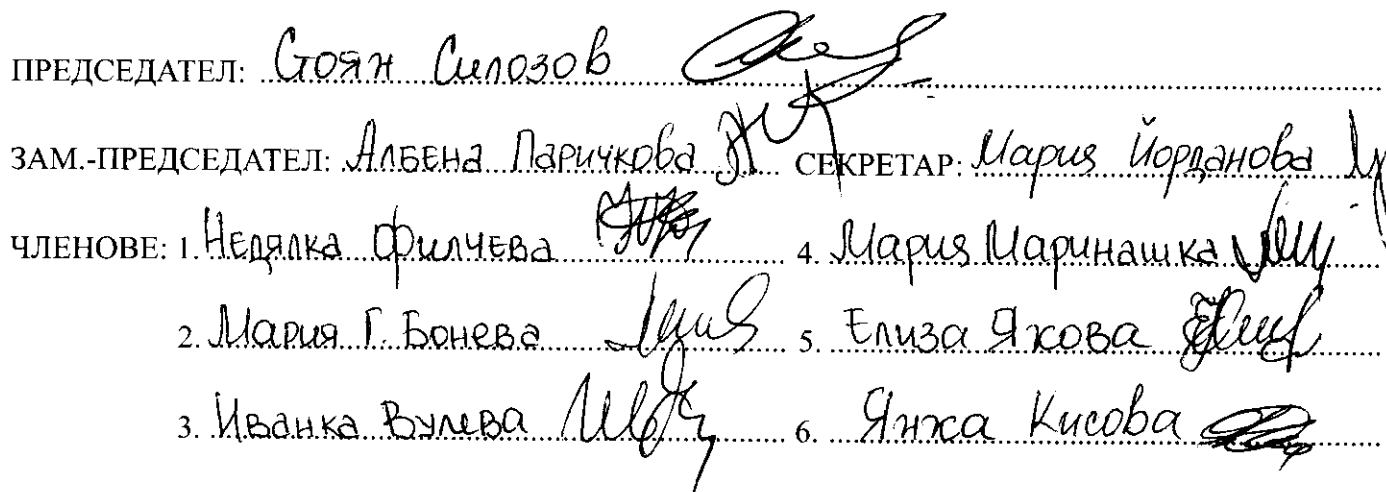 ПРЕДСЕДАТЕЛ: Стоян Силозов
ЗАМ.-ПРЕДСЕДАТЕЛ: Албена Паричкова СЕКРЕТАР: Мария Йорданова
ЧЛЕНОВЕ: 1. Недялка Филчева 4. Мария Маринашка
2. Мария Г. Бонева 5. Елиза Яхова
3. Иванка Вулева 6. Янка Кисова